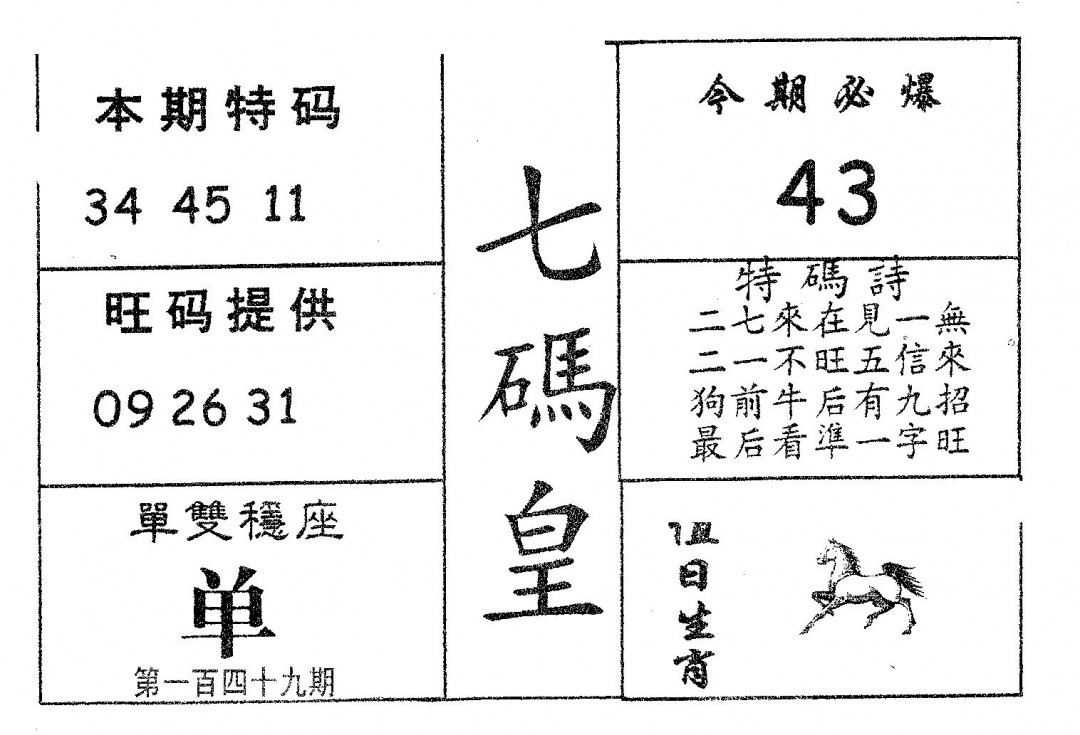 本期特码
34 45 11
旺码提供
09 26 31
單雙穩座
单
第一百四十九期
七碼皇
今期必爆
43
特碼詩
二七來在見一無
二一不旺五信來
狗前牛后有九招
最后看準一字旺
日生肖